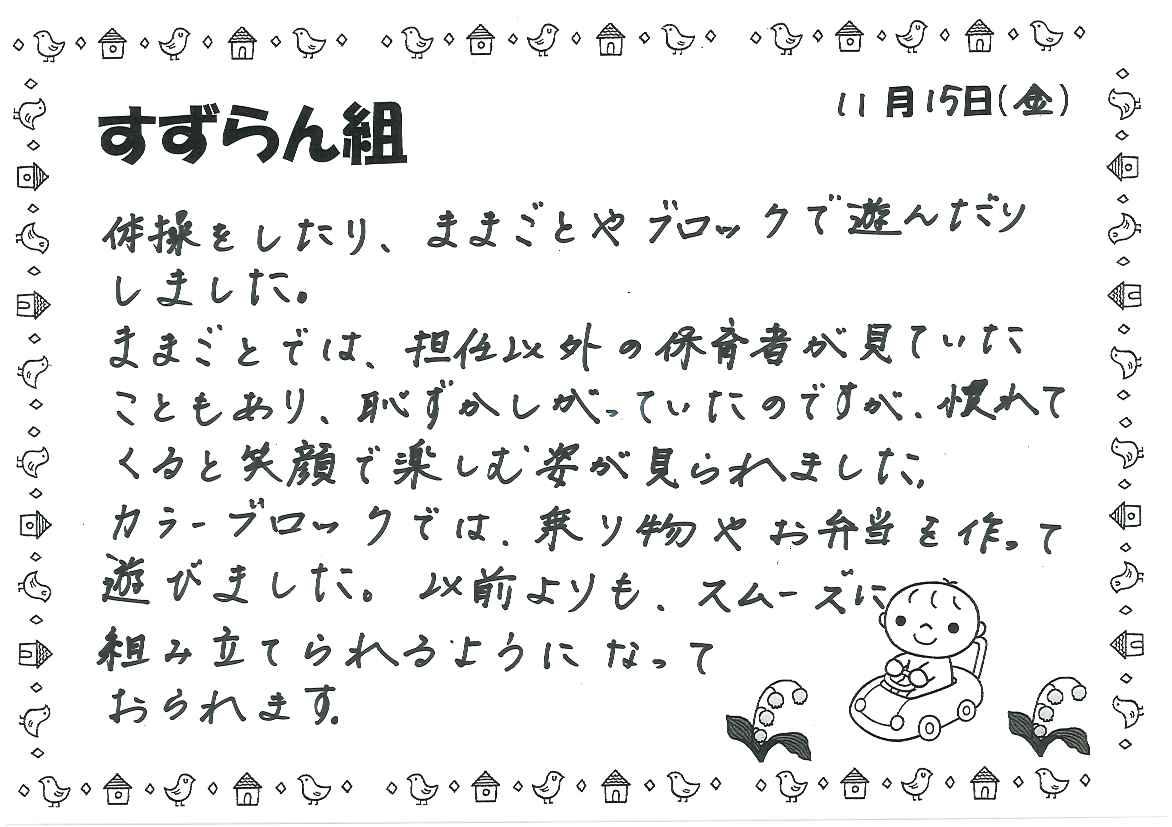 すずらん組
11月15日(金)
体操をしたり、ままごとやブロックで遊んだり
しました。
ままごとでは、担任以外の保育者が見ていた
こともあり、恥ずかしがっていたのですが、慣れて
くると笑顔で楽しむ姿が見られました。
カラーブロックでは、乗り物やお弁当を作って
遊びました。以前よりも、スムーズに
組み立てられるようになって
おられます。